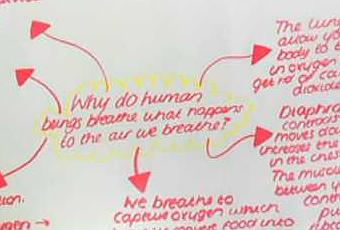 Why do human
beings breathe what happens
to the air we breathe?
The lung
allow yo
body to
in oxygen
get rid of ca
dioxide
Diaphra
contracts
moves dow
increases the
in the ches
The muscl
between y
cont
pu
We breathe to
capture oxygen which
food into
ion.
gen →